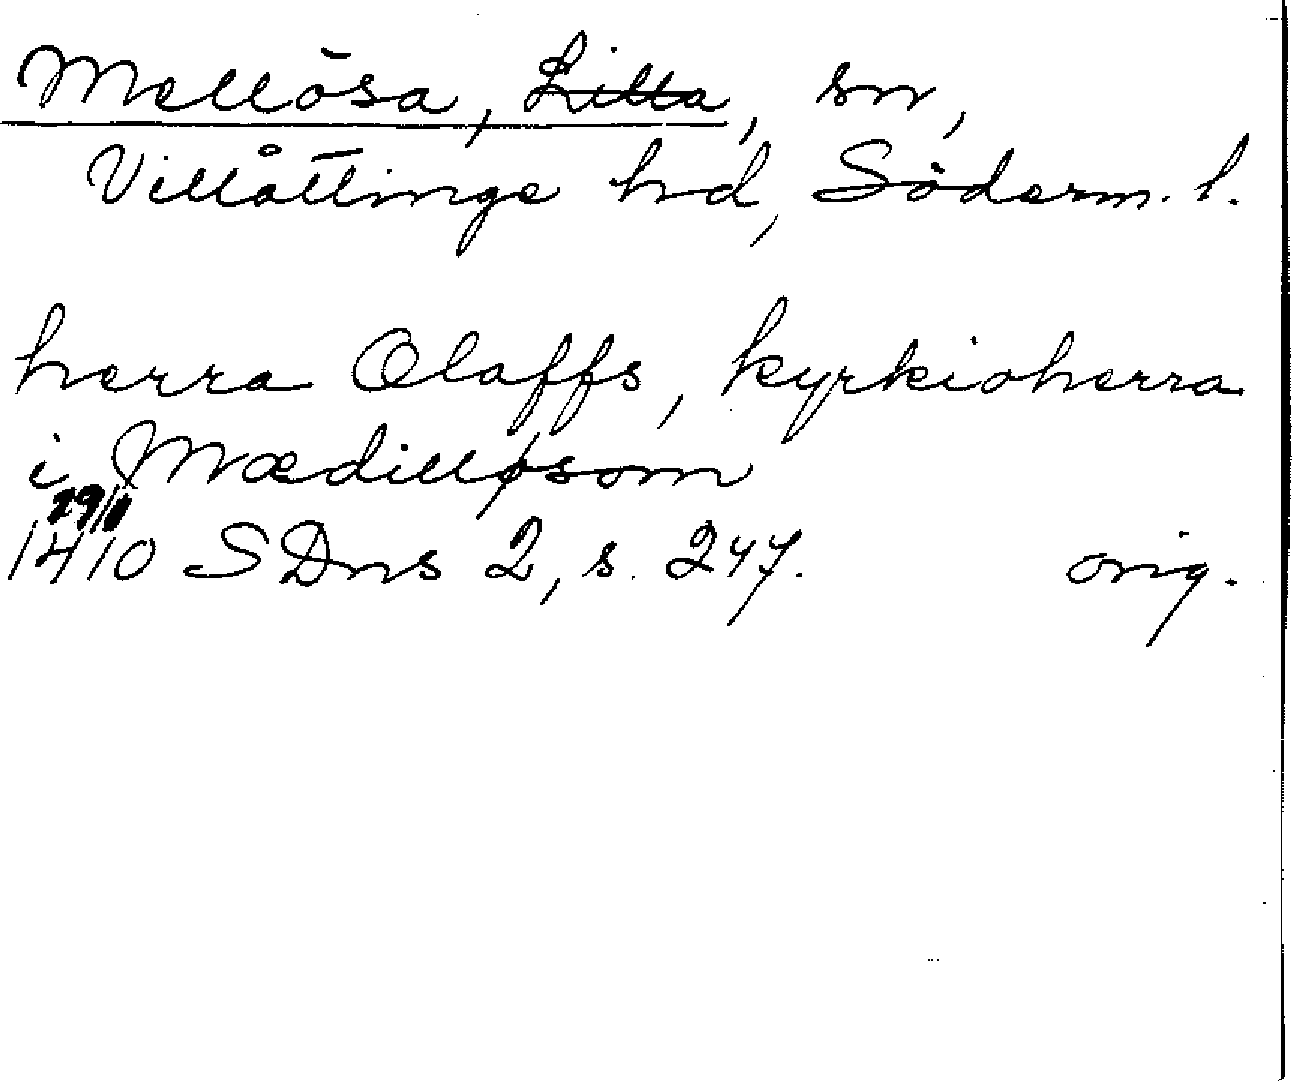 Mellösa, Lilla, sn,
Villåttinge hd, Söderm. l.
herra Olaffs, kyrkioherra
i Mædilløsom
29/11
1410 SDns 2, s. 247. orig.